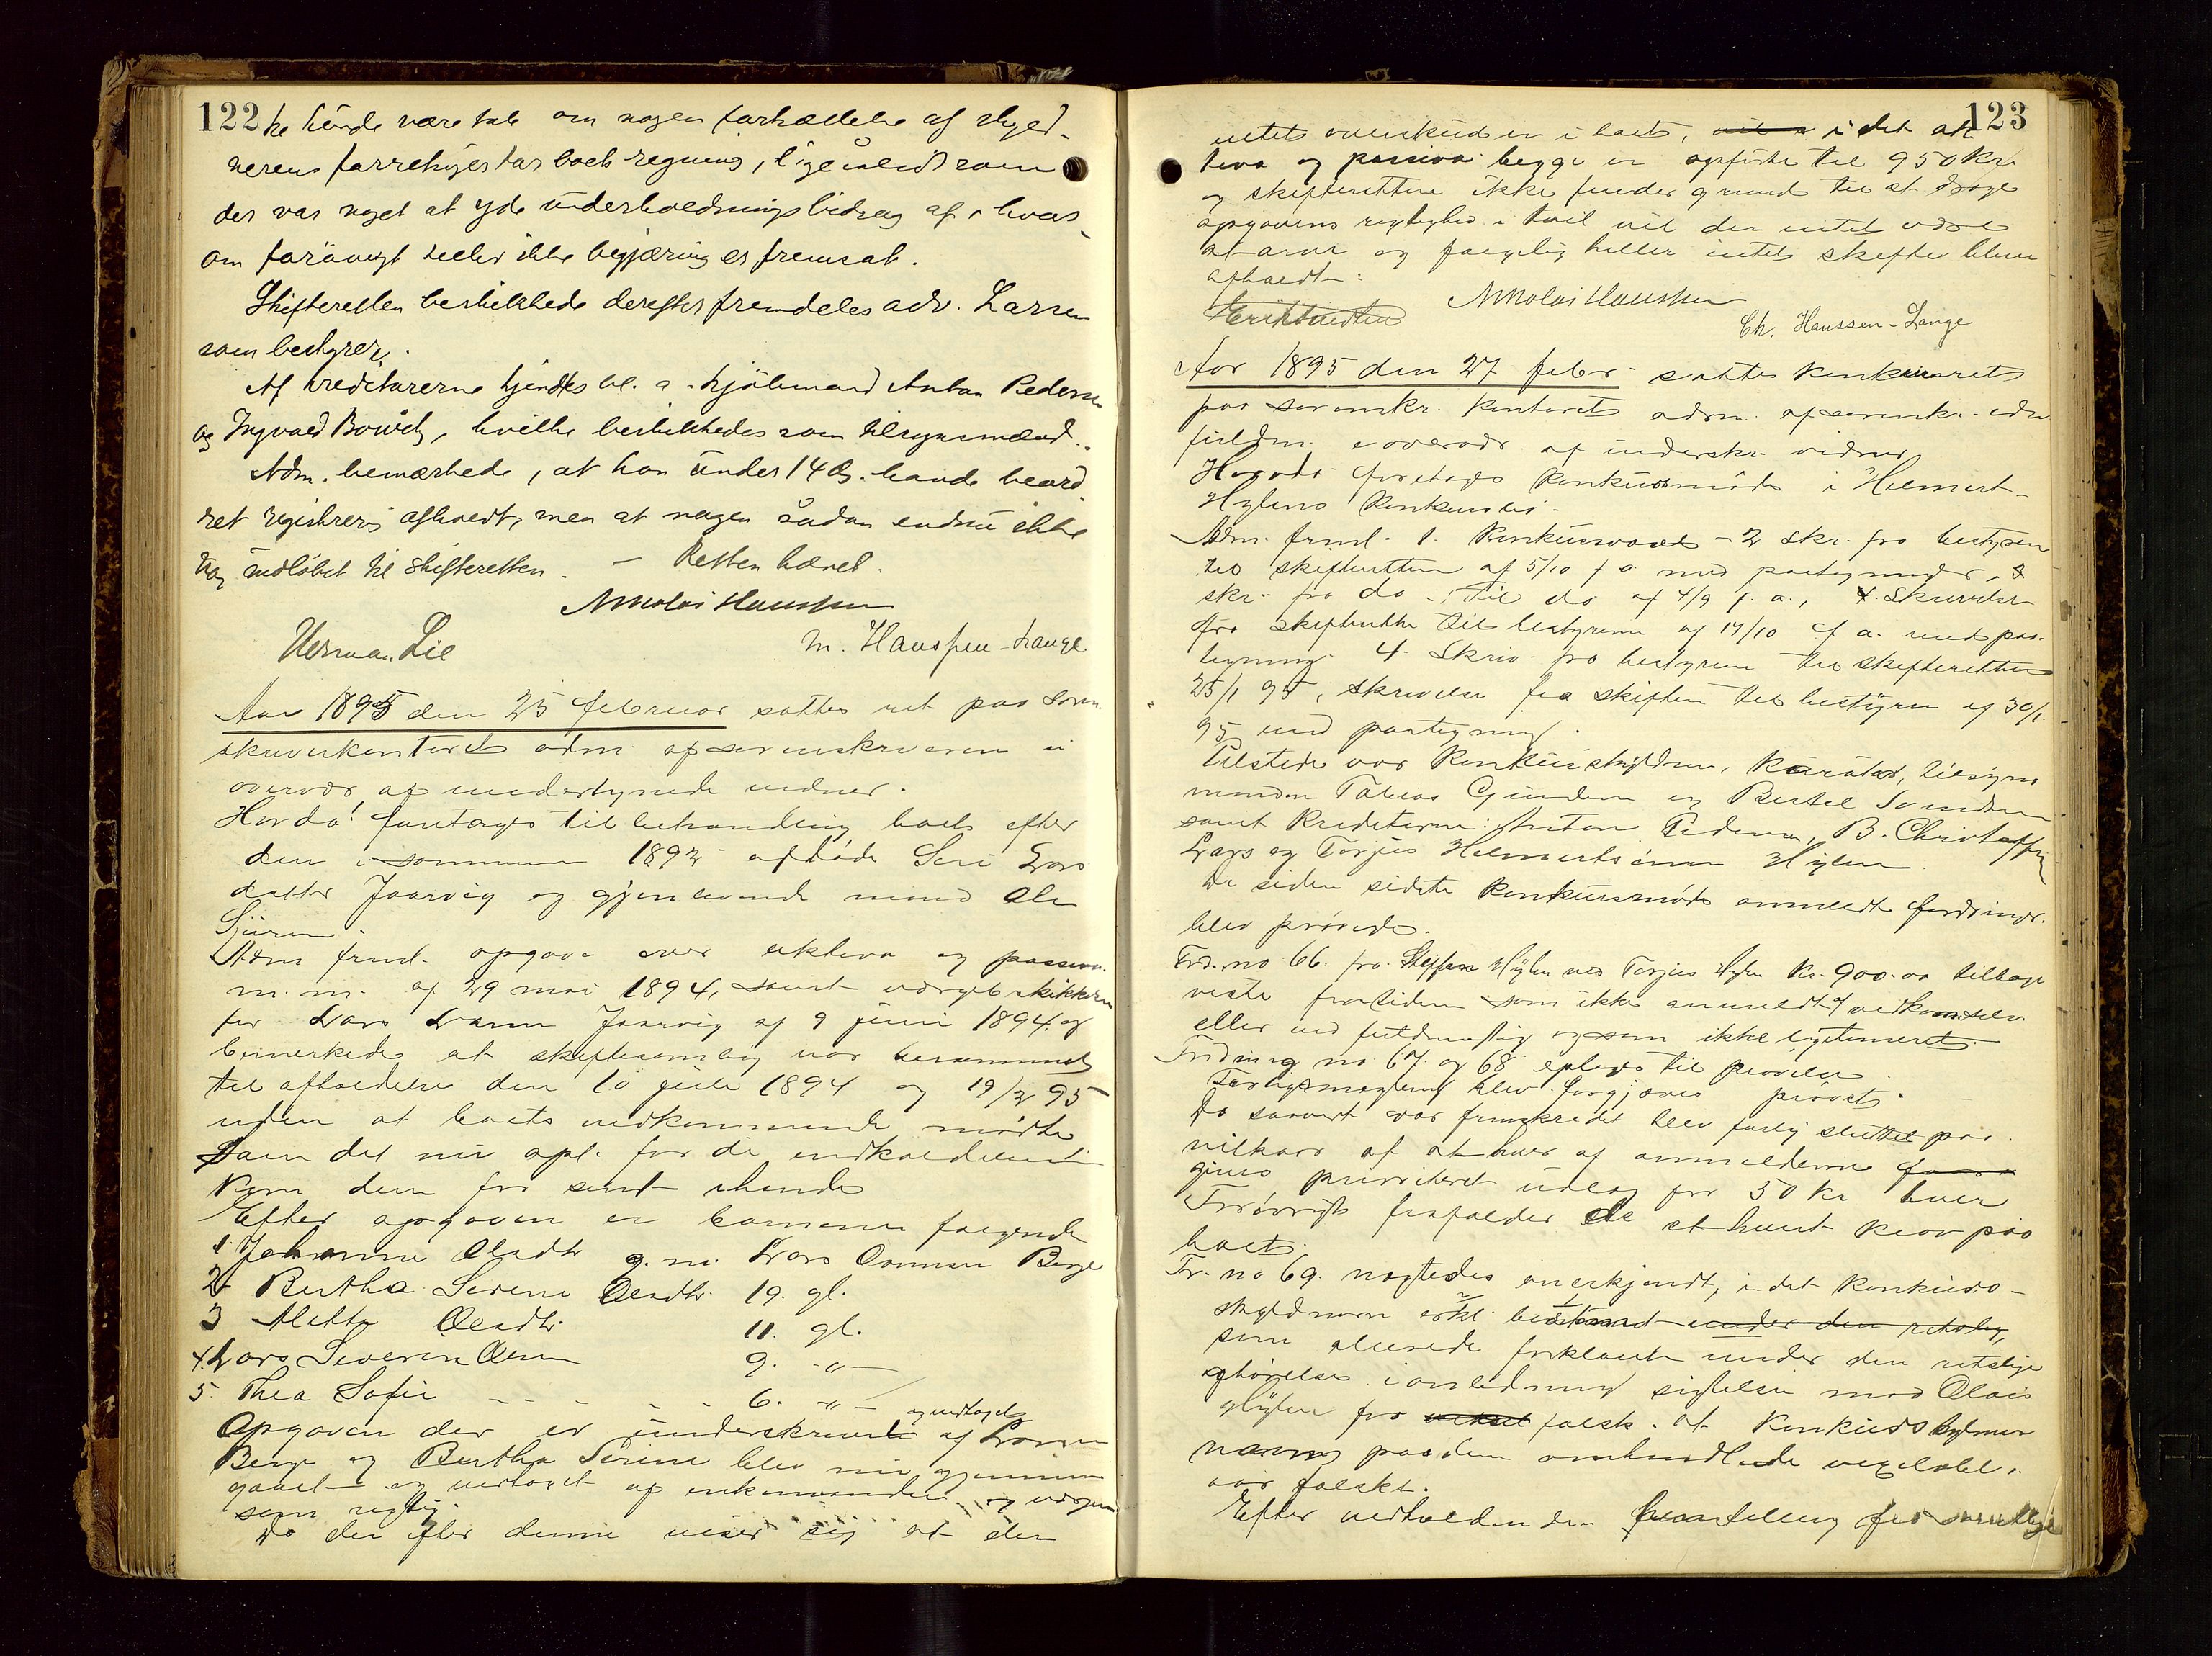 122
ke kunde være tale om nogen fortsættelse af skyld-
nerens forretning for boets regning, ligesålidt som
der var noget at yde underholdningsbidrag af, hvor-
om forøvrigt heller ikke begjæring er fremsat.
Skifteretten beskikkede derefter fremdeles adv. Larsen
som bestyrer.
Af kreditorerne kjendtes bl. a. kjøbmand Anton Pedersen
og Ingvald Bowitz, hvilke beskikkedes som tilsynsmænd.
Adm. bemærkede, at han under 14 ds. havde beord-
ret registrering afholdt, men at nogen sådan endnu ikke
var indløbet til skifteretten. – Retten hævet.
Nikolai Hanssen
Herman Lie
M. Hanssen-Lange
Aar 1895 den 25 februar sattes ret paa soren-
skriverkontoret adm. af sorenskriveren i
overvær af undertegnede vidner.
Hvorda! foretages til behandling boet efter
den i sommeren 1892 afdøde Seri Lars
datter Jaarvig og gjenlevende mand Ole
Sjursen.
Adm freml. opgave over aktiva og passiva
m.m. af 29 mai 1894, samt værgebeskikkelse
for Lars Larsen Jaarvig af 9 juni 1894 og
bemerkede at skiftesamling var berammet
til afholdelse den 10 juli 1894 og 19/2 95
uden at boets vedkommende mødte
Som det nu opl. fordi indkaldelsen
kom dem for sent ihænde
Efter opgaven er børnene følgende
1. Johanne Olsdtr g. m. Lars Omunsen Berge
2 Bertha Serene Olsdtr. 19. gl.
3 Mette Olsdtr. 11. gl.
4. Lars Severin Olsen 9. -"-
5. Thea Sofie - - - - 6. -"-
og vedtaget
Opgaven der er underskrevet af Lars
Berge og Bertha Serine blev nu gjennem
gaaet og vedtaget af enkemanden og værgen
som rigtig.
Da der efter denne viser sig at der
123
intet overskud er i boet, i det ak
tiva og passiva begge er opførte til 950 kr.
og skifteretten ikke finder grund til at drage
opgavens rigtighed i tvil vil der intet være
at arve og følgelig heller intet skifte blive
afholdt.
Nikolai Hanssen
Ch. Hanssen-Lange
Aar 1895 den 27 febr. sattes konkursret
paa sorenskr. kontoret adm. af sorenskr. edsv
fuldm. i overvær af underskr. vidner
Hvorda foretages konkursmøde i Helmert
Hylens konkursbo.
Adm. freml. 1. konkurs - 2 skr. fra bestyren
til skifteretten af 5/10 f a. med paategninger, 3
skr. fra do til do af 4/9 f. a., 4. Skrivelse
fra skifteretten til bestyreren af 17/10 f a. med paa-
tegning. 4. Skriv. fra bestyreren til skifteretten
25/1 95, skrivelse fra skiften til bestyren af 30/1
95 med paategning.
Tilstede var konkursskyldneren, kurator, tilsyns
mænden Tobias Gundersen og Bertel Svendsen
samt kreditorerne: Anton Pedersen, B. Christoffersen
Lars og Torjus Helmertsønner Hylen
De siden sidste konkursmøde anmeldte fordringer
blev prøvede.
Ford. no 66. fra Steffen Hylen ved Torjus Hylen kr. 900.00 tilbage
viste som ikke anmeldt af vedkom selv
eller ved fuldmægtig og som ikke legitimeret.
Fordring no. 67. og 68 til prøvelse.
Forligsmægling blev forgjæves prøvet.
Da blev forlig sluttet paa
vilkaar af at hver af anmelderne
gives prioriteret udlæg for 50 kr hver
Forøvrigt frafalder de et hvert krav paa
boet.
Fr. no 69. nægtedes anerkjendt, i det konkurs-
skyldneren erkl. bestemt under den retslig,
som allerede forklaret under den retslige
afhørelse i anledning sigtelsen mod Olai
Hylen for falsk. at konkursskyldners
navn paa den omhandlede vexelobl.
var falskt.
Efter vedholdende